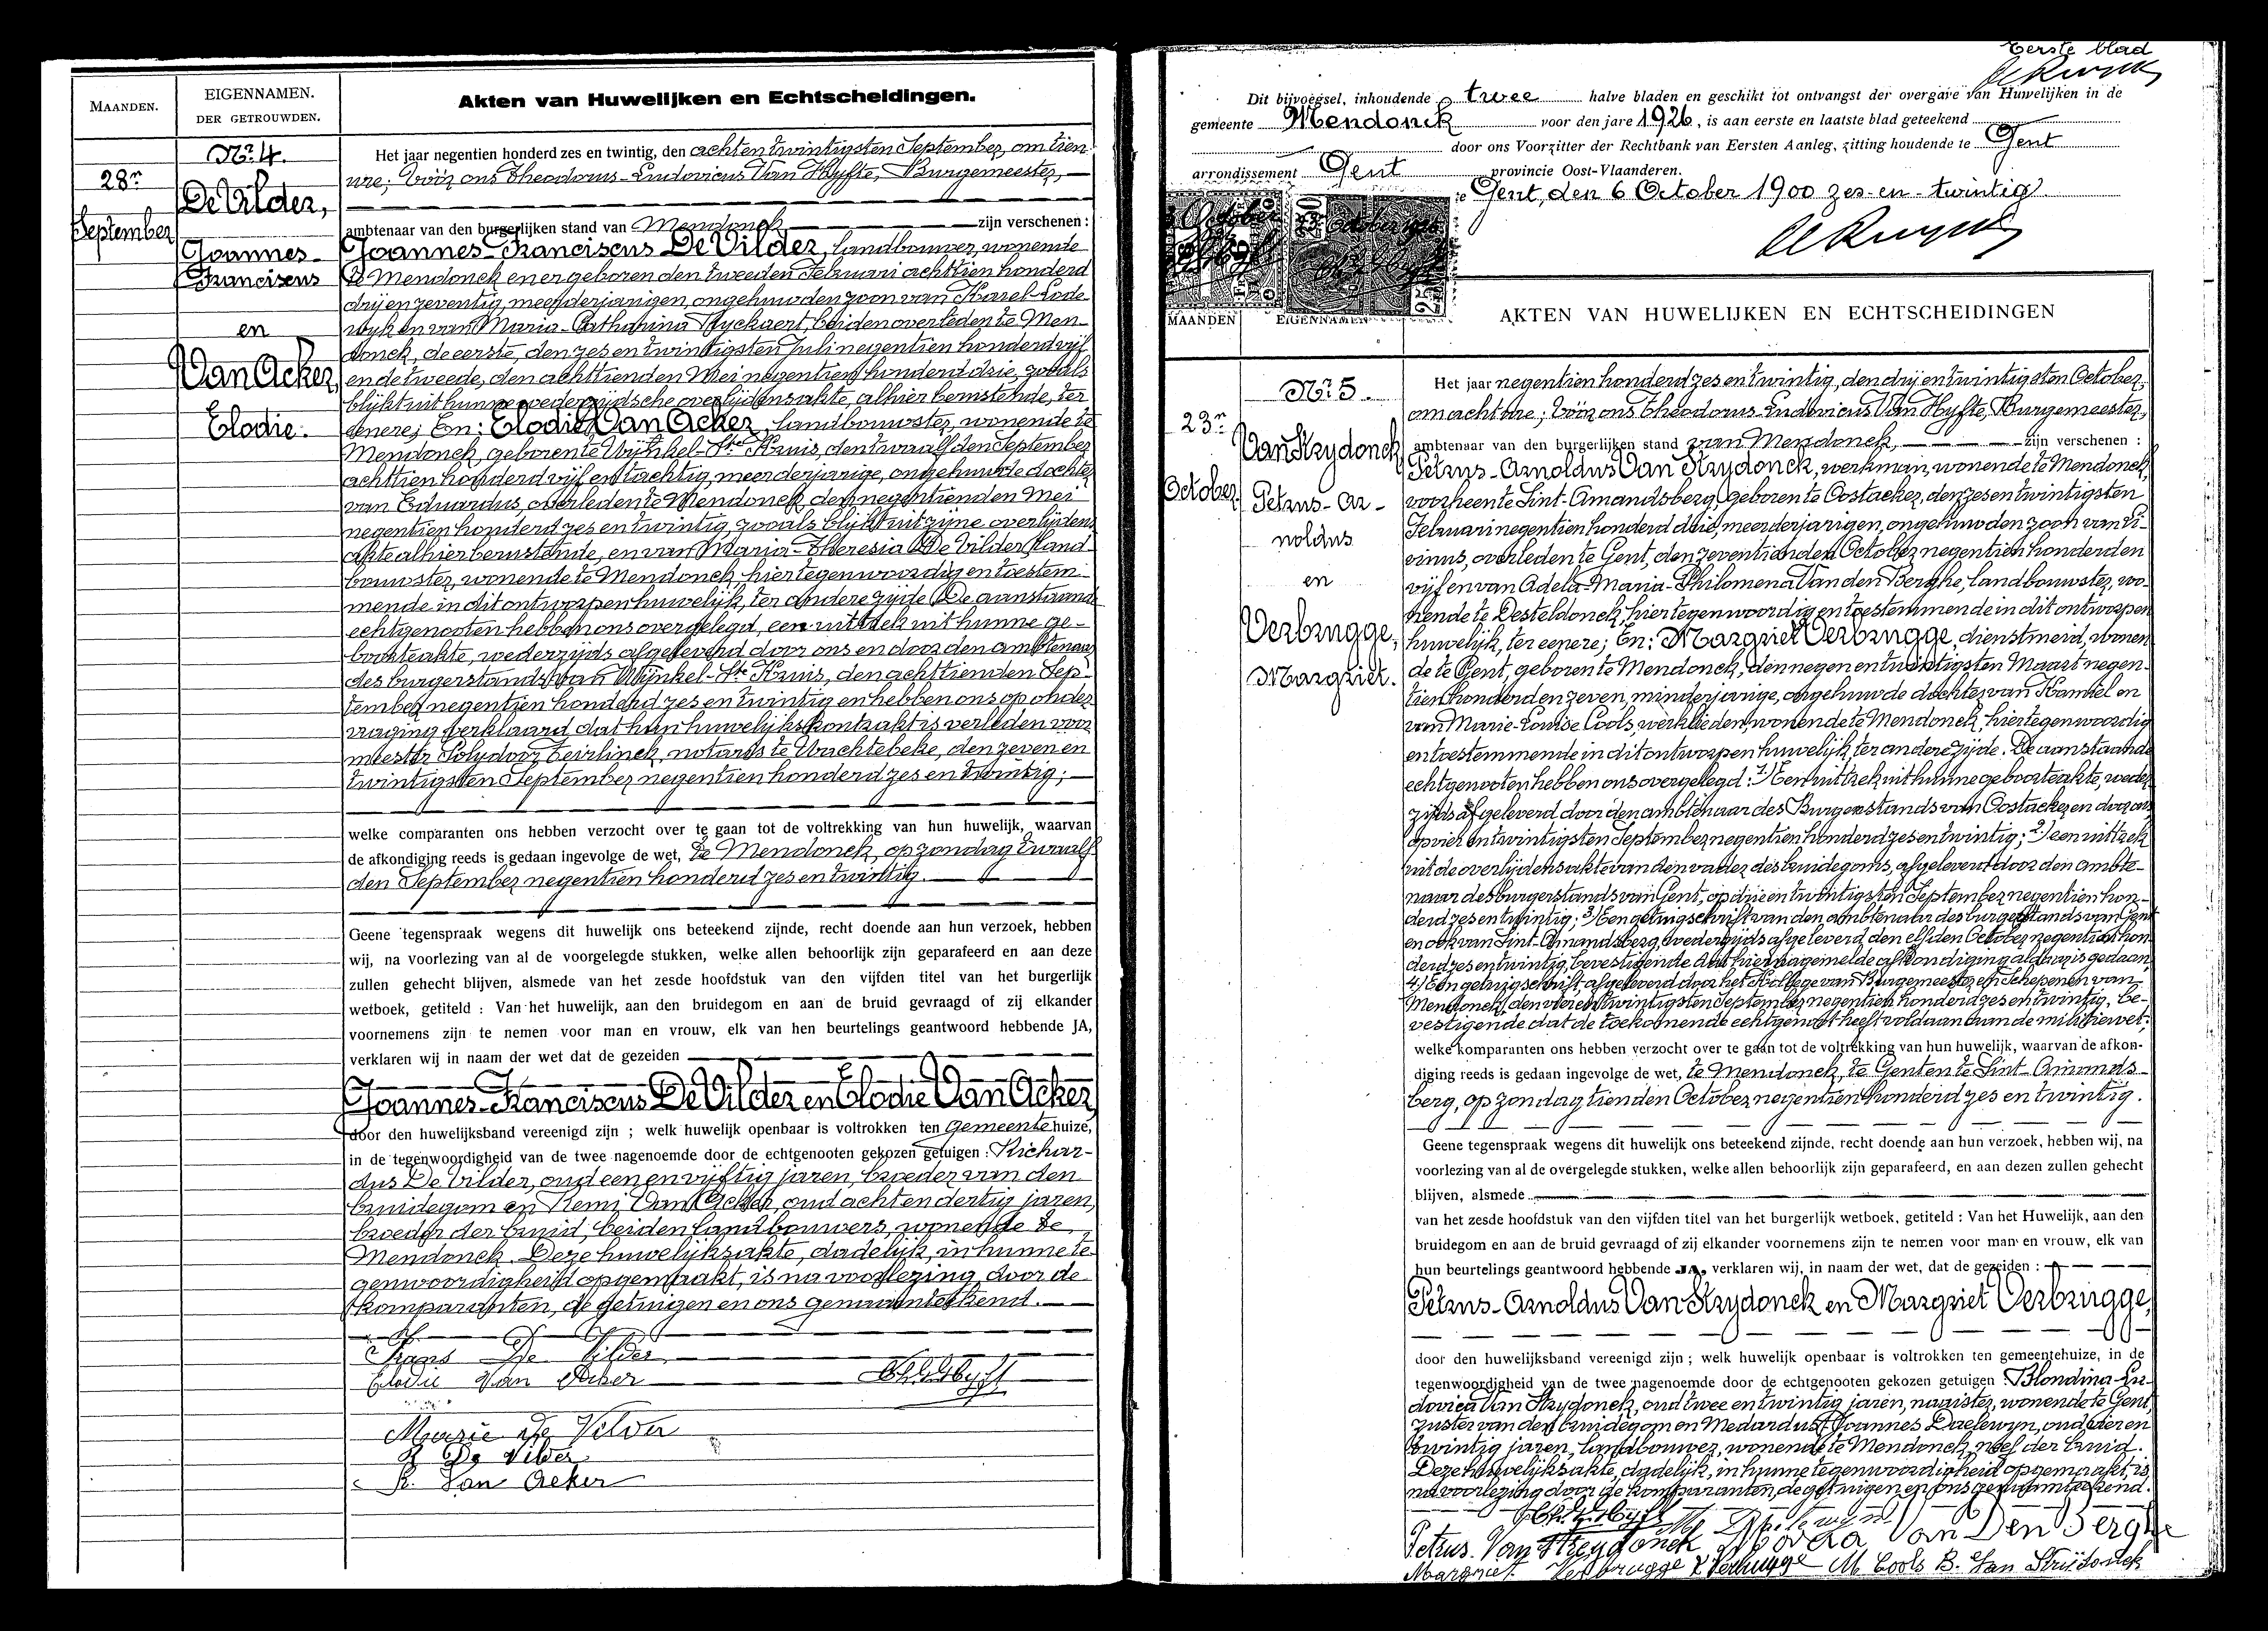 MAANDEN.
EIGENNAMEN.
DER GETROUWDEN.
Akten van Huwelijken en Echtscheidingen.
Nr 4.
28n
September
De Vilder,
Joannes-
Franciscus
en
Van Acker,
Elodie.
Het jaar negentien honderd zes en twintig, den achtentwintigsten September, om tien
ure; vóór ons Theodorus-Ludovicus Van Hyfte, Burgemeester,
ambtenaar van den burgerlijken stand van Mendonck zijn verschenen :
Joannes-Franciscus De Vilder, landbouwer, wonende
te Mendonck en er geboren den tweeden Februari achttien honderd
drij en zeventig, meerderjarigen, ongehuwden zoon van Karel-Lode-
wijk en van Maria-Catharina Ryckaert, beiden overleden te Men-
donck, de eerste, den zes en twintigsten Juli negentien honderd vijf
en de tweede, den achttienden Mei negentien honderd drie, zooals
blijkt uit hunne wederzijdsche overlijdensakte, alhier berustende, ter
eenere; En: Elodie Van Acker, landbouwster, wonende te
Mendonck, geboren te Wijnkel-Ste Kruis, den twaalfden September
achttien honderd vijf en tachtig, meerderjarige, ongehuwde dochter
van Eduardus, overleden te Mendonck, den negentienden Mei
negentien honderd zes en twintig, zooals blijkt uit zijne overlijdens
akte alhier berustende, en van Maria-Theresia De Vilder, land-
bouwster, wonende te Mendonck, hier tegenwoordig en toestem-
mende in dit ontworpen huwelijk, ter andere zijde. De aanstaande
echtgenooten hebben ons overgelegd, een uittrek uit hunne ge-
boorteakte, wederzijds afgeleverd door ons en door den ambtenaar
des burgerstands van Wijnkel-Ste Kruis, den achttienden Sep-
tember negentien honderd zes en twintig en hebben ons op onder-
vraging verklaard, dat hun huwelijkskontrakt is verleden voor
meester Polydoor Teirlinck, notaris te Wachtebeke, den zeven en
twintigsten September negentien honderd zes en twintig;
welke comparanten ons hebben verzocht over te gaan tot de voltrekking van hun huwelijk, waarvan
de afkondiging reeds is gedaan ingevolge de wet, te Mendonck, op zondag twaalf
den September negentien honderd zes en twintig.
Geene tegenspraak wegens dit huwelijk ons beteekend zijnde, recht doende aan hun verzoek, hebben
wij, na voorlezing van al de voorgelegde stukken, welke allen behoorlijk zijn geparafeerd en aan deze
zullen gehecht blijven, alsmede van het zesde hoofdstuk van den vijfden titel van het burgerlijk
wetboek, getiteld : Van het huwelijk, aan den bruidegom en aan de bruid gevraagd of zij elkander
voornemens zijn te nemen voor man en vrouw, elk van hen beurtelings geantwoord hebbende JA,
verklaren wij in naam der wet dat de gezeiden
Joannes-Franciscus De Vilder en Elodie Van Acker,
door den huwelijksband vereenigd zijn ; welk huwelijk openbaar is voltrokken ten gemeentehuize,
in de tegenwoordigheid van de twee nagenoemde door de echtgenooten gekozen getuigen : Richar-
dus De Vilder, oud een en vijftig jaren, broeder van den
bruidegom en Remi Van Acker, oud acht en dertig jaren,
broeder der bruid, beiden landbouwers, wonende te
Mendonck. Deze huwelijksakte, dadelijk, in hunne te-
genwoordigheid opgemaakt, is na voorlezing, door de
komparanten, de getuigen en ons genaamteekend.
Frans De Vilder
Elodie Van Acker
Marie De Velder
R De Vilder
R. Van Acker
Eerste blad
Dit bijvoegsel, inhoudende twee halve bladen en geschikt tot ontvangst der overgave van Huwelijken in de
gemeente Mendonck voor den jare 1926, is aan eerste en laatste blad geteekend
door ons Voorzitter der Rechtbank van Eersten Aanleg, zitting houdende te Gent
arrondissement Gent provincie Oost-Vlaanderen.
Gent, den 6 October 1900 zes-en-twintig
MAANDEN
EIGENNAMEN
AKTEN VAN HUWELIJKEN EN ECHTSCHEIDINGEN
Nr 5.
23n
October
Van Strydonck
Petrus-Ar-
noldus
en
Verbrugge,
Margriet.
Het jaar negentien honderd zes en twintig, den drij en twintigsten October,
om acht ure; vóór ons Theodorus-Ludovicus Van Hyfte, Burgemeester,
ambtenaar van den burgerlijken stand van Mendonck, zijn verschenen :
Petrus-Arnoldus Van Strydonck, werkman, wonende te Mendonck,
voorheen te Sint-Amandsberg, geboren te Oostacker, den zes en twintigsten
Februari negentien honderd drie, meerderjarigen, ongehuwden zoon van Li-
vinus, overleden te Gent, den zeventienden October negentien honderd en
vijf en van Adela-Maria-Philomena Van den Berghe, landbouwster, wo-
nende te Desteldonck, hier tegenwoordig en toestemmende in dit ontworpen
huwelijk, ter eenere; En: Margriet Verbrugge, dienstmeid, wonen
de te Gent, geboren te Mendonck, den negen en twintigsten Maart negen-
tien honderd en zeven, minderjarige, ongehuwde dochter van Kamiel en
van Marie-Louise Cools, werklieden, wonende te Mendonck, hier tegenwoordig
en toestemmende in dit ontworpen huwelijk, ter andere zijde. De aanstaande
echtgenooten hebben ons overgelegd: 1) Een uittrek uit hunne geboorteakte, weder-
zijds afgeleverd door den ambtenaar des Burgerstands van Oostacker en door ons
op vier en twintigsten September negentien honderd zes en twintig; 2) een uittrek
uit de overlijdensakte van den vader des bruidegoms, afgeleverd door den ambte-
naar des burgerstands van Gent, op drij en twintigsten September negentien hon-
derd zes en twintig; 3) Een getuigschrift van den ambtenaar des burgerstands van Gent
en ook van Sint-Amandsberg, wederzijds afgeleverd den elfden October negentien hon
derd zes en twintig, bevestigende dat hier nagemelde afkondiging aldaar is gedaan;
4) Een getuigschrift, afgeleverd door het Kollege van Burgemeester en Schepenen van
Mendonck, den vier en twintigsten September negentien honderd zes en twintig, be-
vestigende dat de toekomende echtgenoot heeft voldaan aan de militiewet;
welke komparanten ons hebben verzocht over te gaan tot de voltrekking van hun huwelijk, waarvan de afkon-
diging reeds is gedaan ingevolge de wet, te Mendonck, te Gent en te Sint-Amands-
berg, op zondag tienden October negentien honderd zes en twintig.
Geene tegenspraak wegens dit huwelijk ons beteekend zijnde, recht doende aan hun verzoek, hebben wij, na
voorlezing van al de overgelegde stukken, welke allen behoorlijk zijn geparafeerd, en aan dezen zullen gehecht
blijven, alsmede
van het zesde hoofdstuk van den vijfden titel van het burgerlijk wetboek, getiteld : Van het Huwelijk, aan den
bruidegom en aan de bruid gevraagd of zij elkander voornemens zijn te nemen voor man en vrouw, elk van
hun beurtelings geantwoord hebbende JA, verklaren wij, in naam der wet, dat de gezeiden :
Petrus-Arnoldus Van Strydonck en Margriet Verbrugge,
door den huwelijksband vereenigd zijn ; welk huwelijk openbaar is voltrokken ten gemeentehuize, in de
tegenwoordigheid van de twee nagenoemde door de echtgenooten gekozen getuigen : Blondina-Lu-
dovica Van Strydonck, oud twee en twintig jaren, naaister, wonende te Gent,
zuster van den bruidegom en Medardus-Joannes Daelewyn, oud vier en
twintig jaren, landbouwer, wonende te Mendonck, neef der bruid.
Deze huwelijksakte, dadelijk, in hunne tegenwoordigheid opgemaakt, is
na voorlezing door de komparanten, de getuigen en ons genaamteekend.
Petrus Van Strydonck Van Den Berghe
Margriet Verbrugge K Verbrugge M Cools B. Van Strijdonck